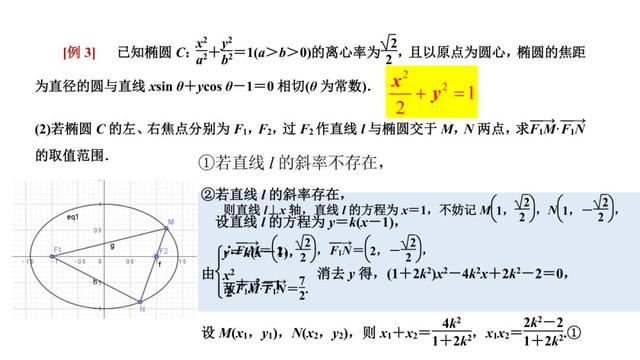 [例 3] 已知椭圆 C: x²/a²+y²/b²=1(a>b>0)的离心率为√2/2, 且以原点为圆心, 椭圆的焦距
为直径的圆与直线 xsin θ+ycos θ-1=0 相切(θ 为常数).
x²/2 + y² = 1
(2)若椭圆 C 的左、右焦点分别为 F₁, F₂, 过 F₂作直线 l 与椭圆交于 M, N 两点, 求F₁M·F₁N
的取值范围.
①若直线 l 的斜率不存在,
②若直线 l 的斜率存在,
则直线 l⊥x 轴, 直线 l 的方程为 x=1, 不妨记 M(1, √2/2), N(1, -√2/2),
设直线 l 的方程为 y=k(x-1),
F₁N=(2, -√2/2),
由 消去 y 得, (1+2k²)x²-4k²x+2k²-2=0,
F₁M·F₁N=7/2.
设 M(x₁, y₁), N(x₂, y₂), 则 x₁+x₂=4k²/(1+2k²), x₁x₂=(2k²-2)/(1+2k²).①
eq1
M
g
F1
F2
f
h
N
-1.5 -1 -0.5 0 0.5 1 1.5
0.5